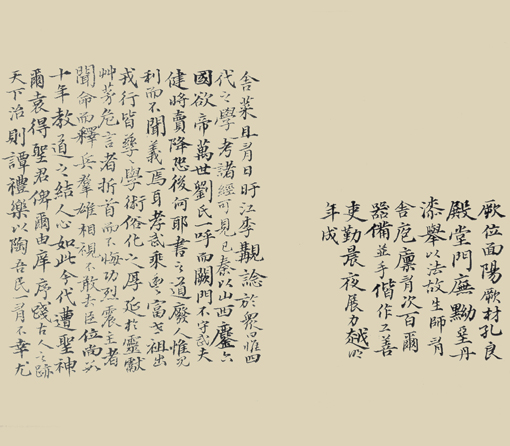 厥位面陽厥材孔良
殿堂門廡黝堊丹
漆舉以法故生師有
舍庖廩有次百爾
器備並手偕作工善
吏勤晨夜展力越明
年成
舍菜且有日盱江李覯諗於衆曰惟四
代之學考諸經可見已秦以山西鏖六
國欲帝萬世劉氏一呼而關門不守武夫
健將賣降恐後何耶書之道廢人惟見
利而不聞義焉耳孝武乘豐富世祖出
戎行皆孳學術俗化之厚延於靈獻
艸茅危言者折首而不悔功烈震主者
聞命而釋兵羣雄相視不敢去臣位尚數
十年教道之結人心如此今代遭聖神
爾袁得聖君俾爾由庠序踐古人之跡
天下治則譚禮樂以陶吾民一有不幸尤